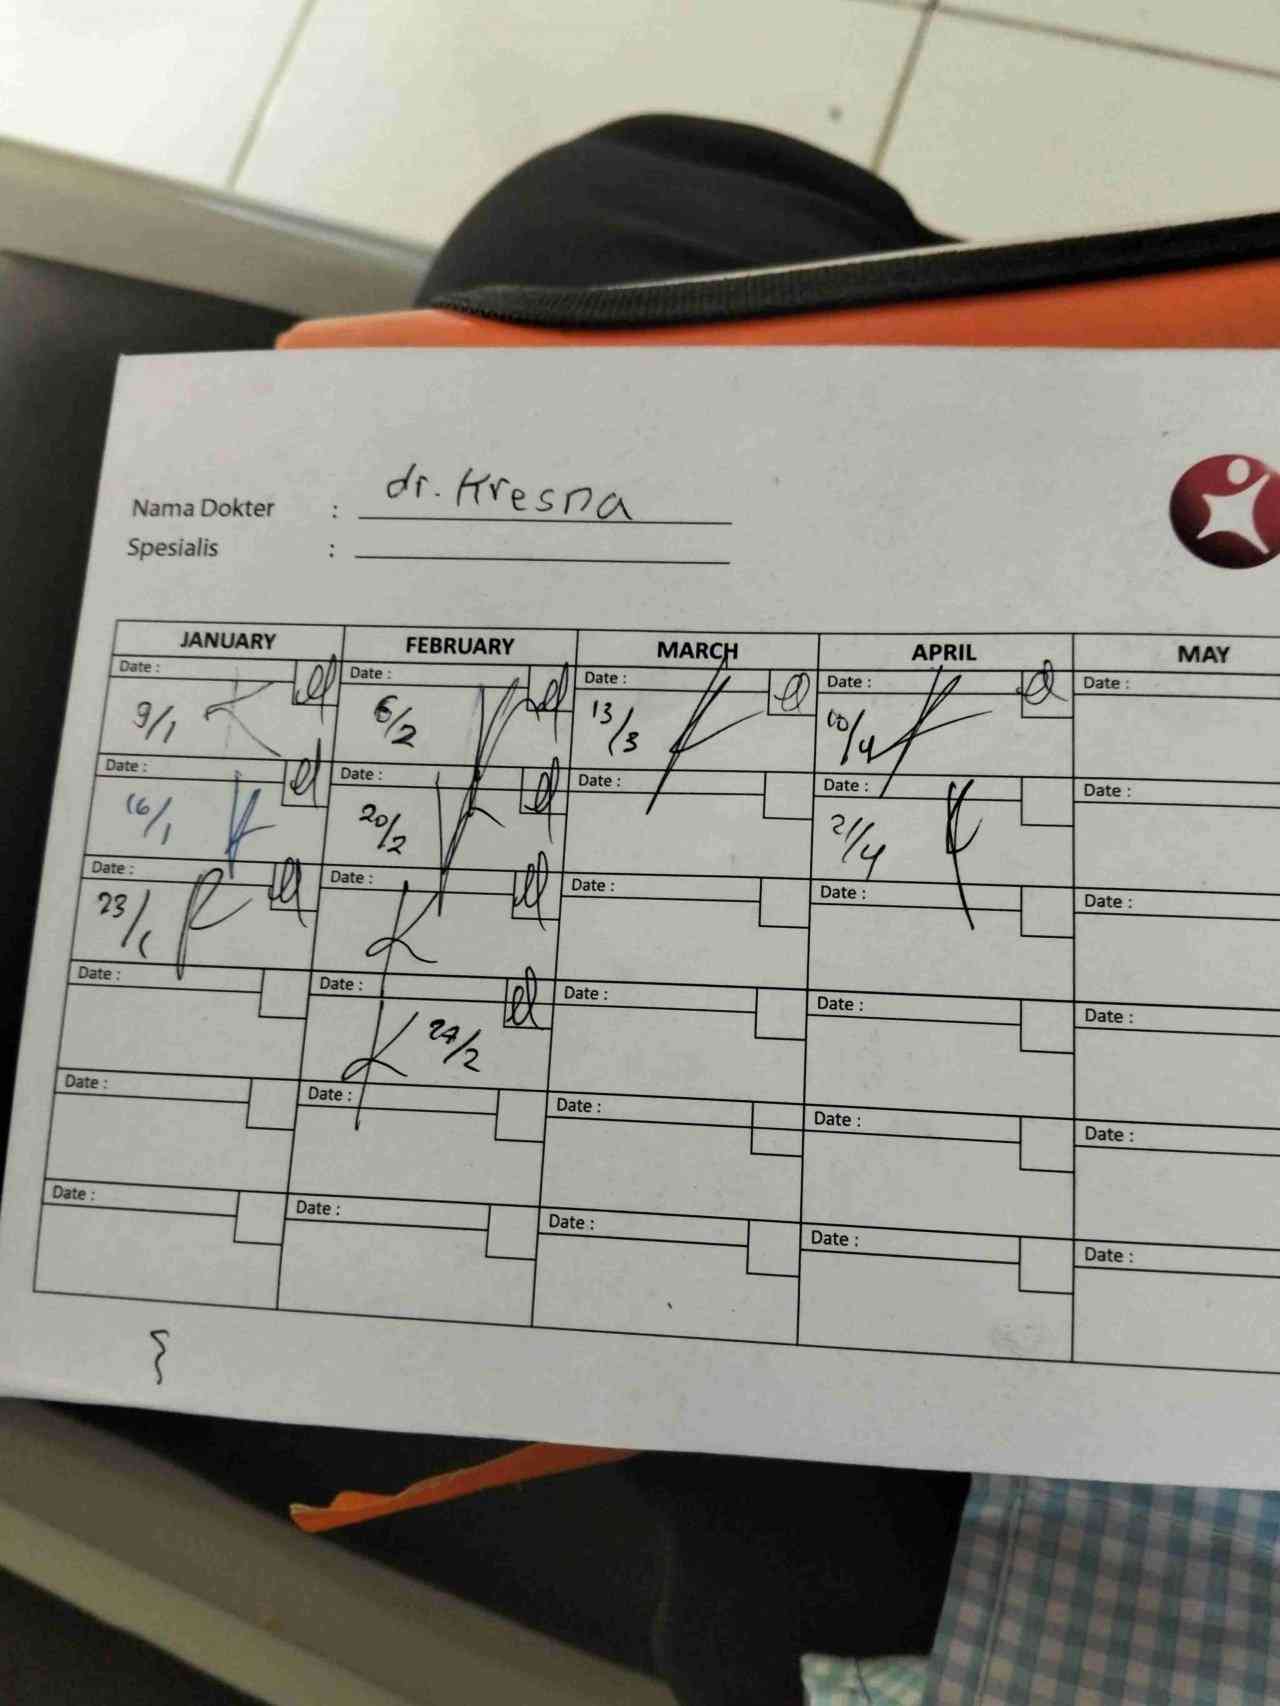 Nama Dokter : dr. Kresna
Spesialis :
JANUARY FEBRUARY MARCH APRIL MAY
Date : Date : Date : Date : Date :
9/1 6/2 13/3 10/4
Date : Date : Date : Date : Date :
16/1 20/2 21/4
Date : Date : Date : Date : Date :
23/1
Date : Date : Date : Date : Date :
27/2
Date : Date : Date : Date : Date :
Date : Date : Date : Date : Date :